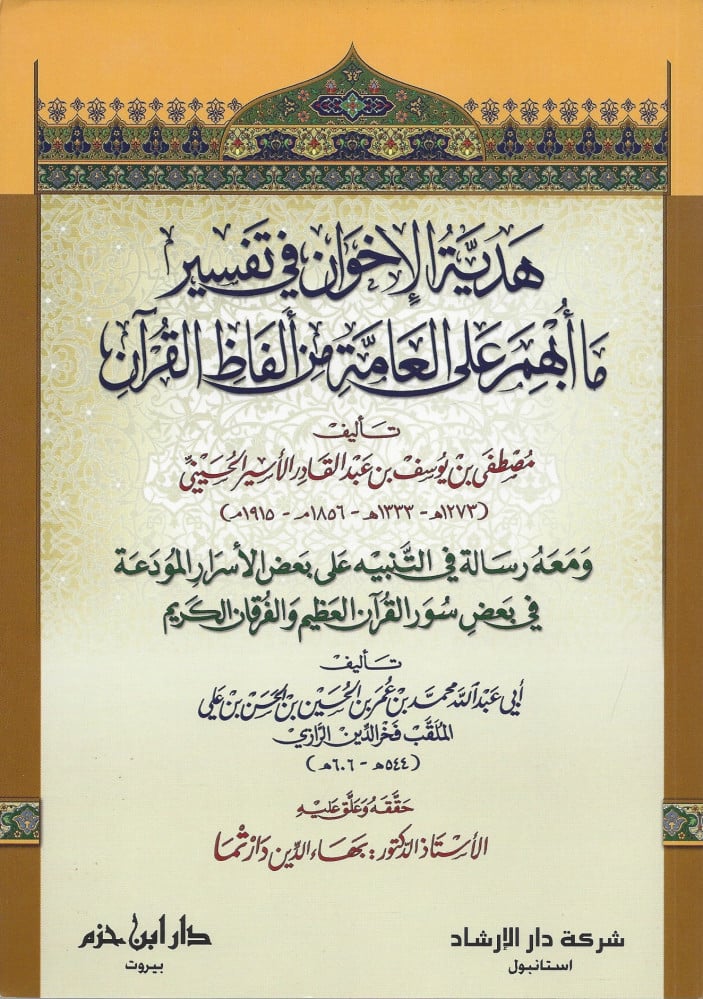 هَديَّة الإِخوَان في تَفسير
مَا أُبْهِمَ عَلى العَامَّةِ مِن أَلفَاظِ القُرآنِ
تأليف
مُصْطفَى بن يُوسف بن عَبد القَادِر الأسير الحُسَينيّ
(١٢٧٣هـ - ١٣٣٣هـ - ١٨٥٦مـ - ١٩١٥مـ)
وَمَعَهُ رسَالة في التَّنبيه عَلى بَعض الأسرَار المُودَعَة
في بَعضِ سُوَر القُرآن العَظيم وَالفُرقان الكَريم
تأليف
أبي عَبد الله محمَّد بن عُمَر بن الحُسَين بن الحَسَن بن عَلي
المُلَقَّب فَخر الدِّين الرَّازي
(٥٤٤هـ - ٦٠٦هـ)
حَقَّقَهُ وَعَلَّق عَليْهِ
الأسْتاذ الدكتور: بَهَاء الدِّين دَارْتْمَا
شركة دار الإرشاد
استانبول
دار ابن حزم
بيروت